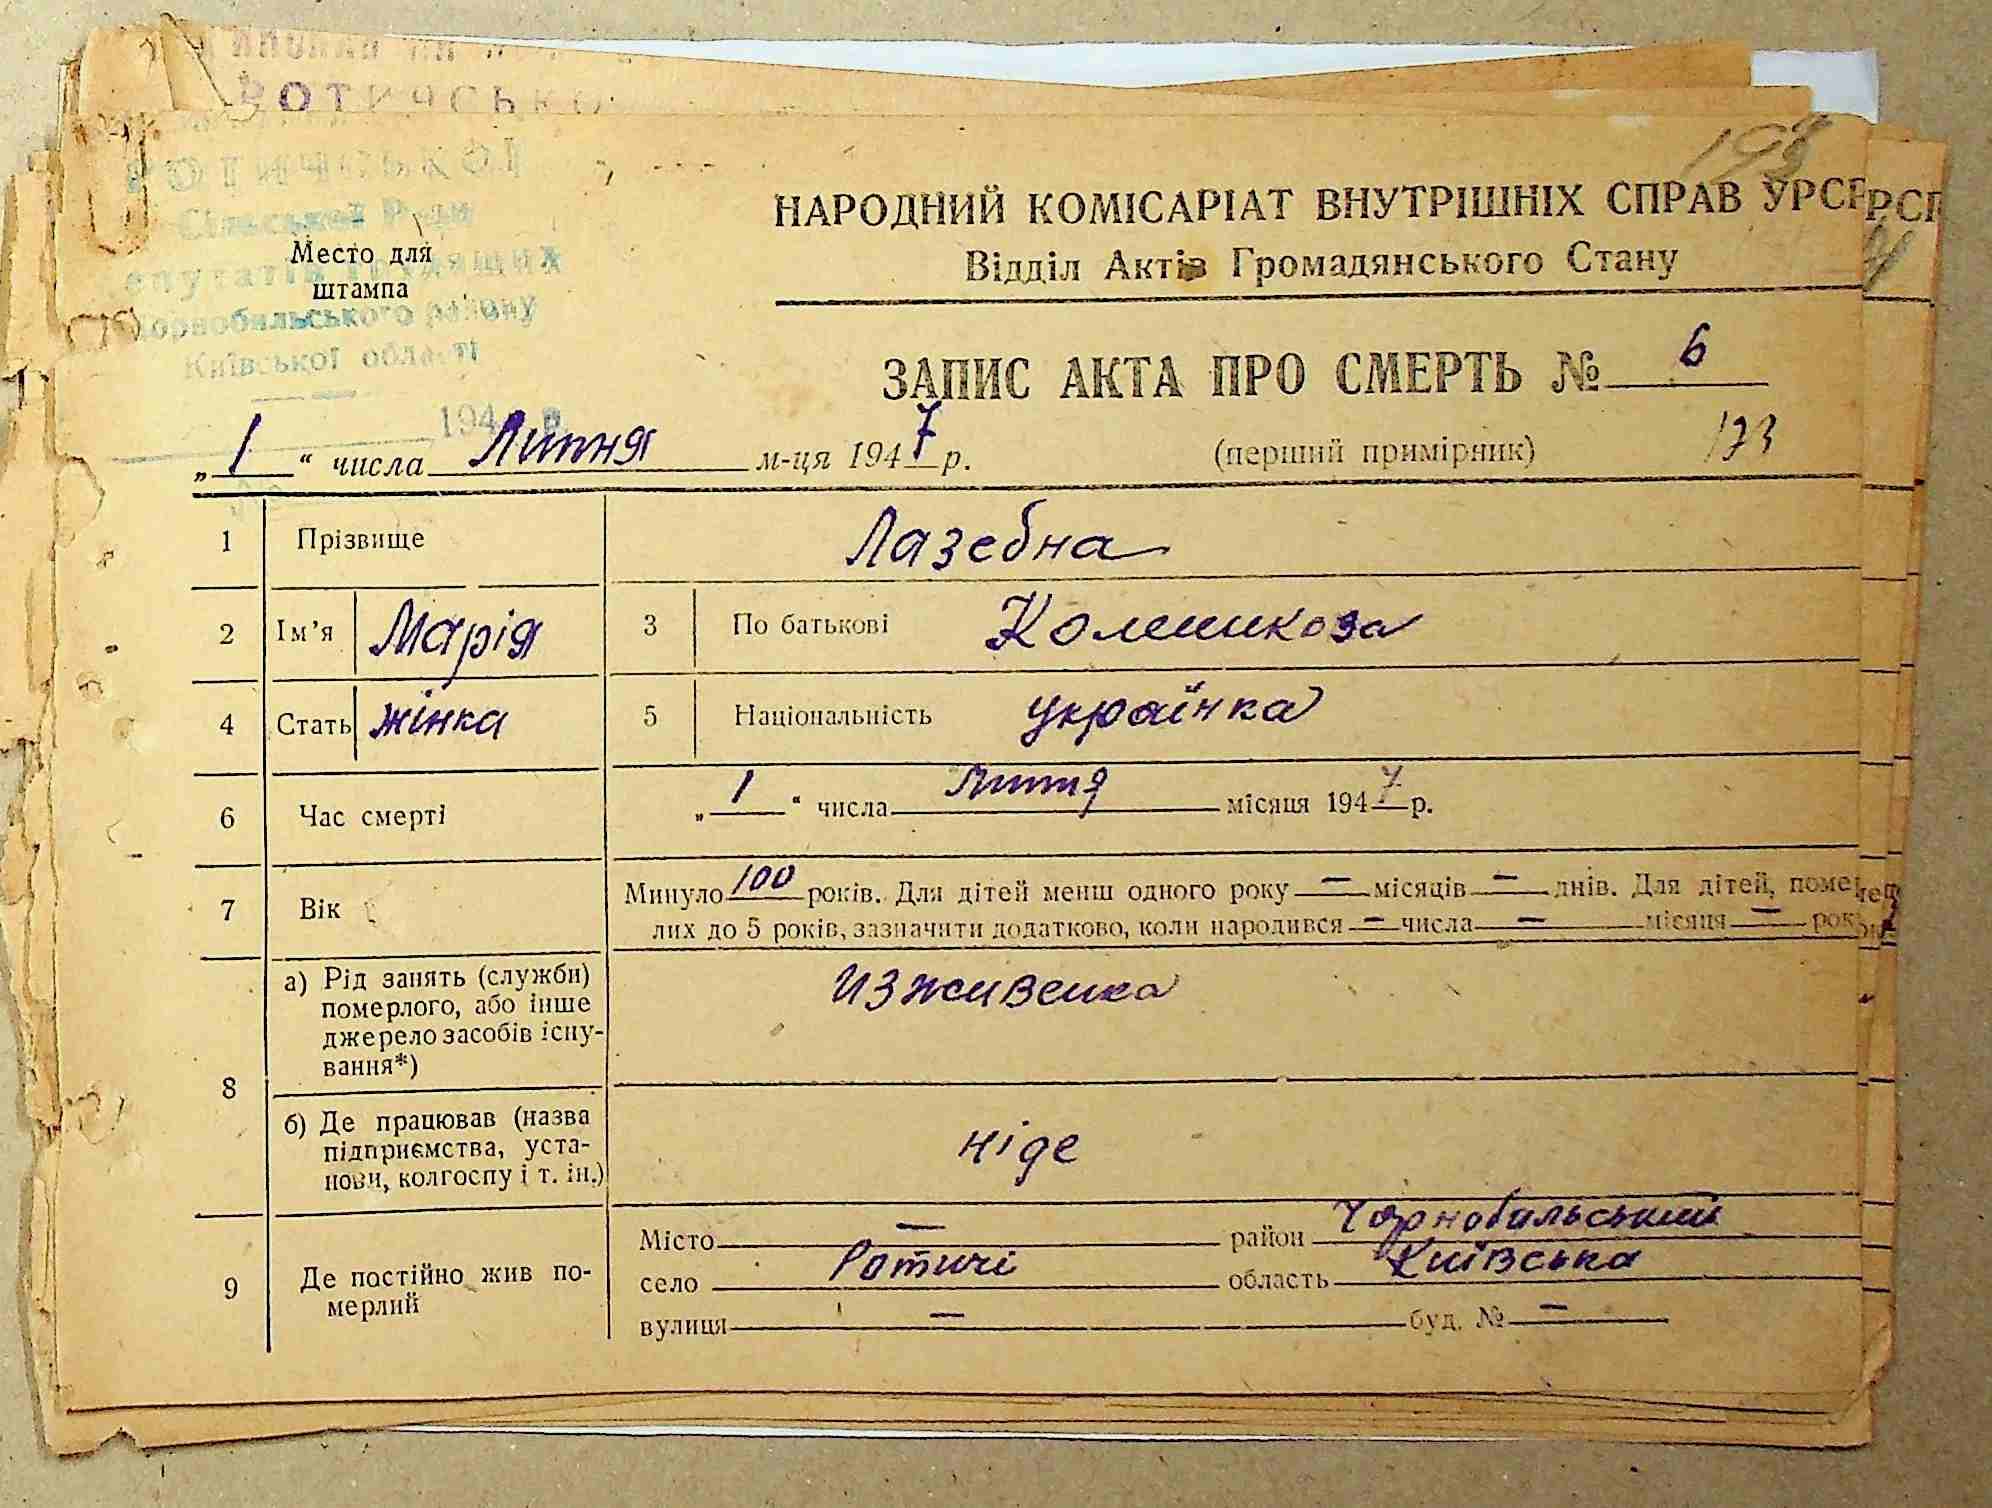 РОТИЧСЬКО
РОТИЧСЬКОЇ
Сільської Ради
депутатів трудящих
Чорнобильського району
Київської області
194 р.
Место для
штампа
198
НАРОДНИЙ КОМІСАРІАТ ВНУТРІШНІХ СПРАВ УРСР
Відділ Актів Громадянського Стану
ЗАПИС АКТА ПРО СМЕРТЬ № 6
„ 1 “ числа Липня м-ця 1947 р. (перший примірник) 173
1 Прізвище Лазебна
2 Ім’я Марія 3 По батькові
4 Стать жінка 5 Національність українка
6 Час смерті „ 1 “ числа Липня місяця 1947 р.
7 Вік Минуло 100 років. Для дітей менш одного року — місяців — днів. Для дітей, поме
лих до 5 років, зазначити додатково, коли народився — числа — місяця — рок
8 а) Рід занять (служби) померлого, або інше джерело засобів існування*) изживенка
б) Де працював (назва підприємства, установи, колгоспу і т. ін.) ніде
9 Де постійно жив померлий
Місто — район Чорнобильський
село Ротичі область Київська
вулиця — буд. № —